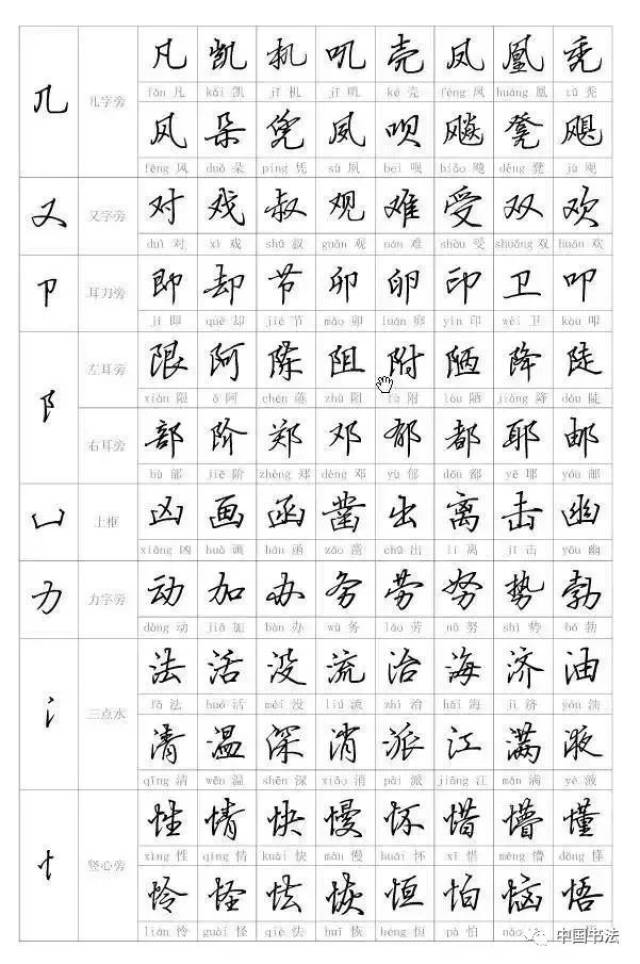 几 几字旁 凡 凯 机 叽 壳 凤 凰 秃
fán 凡 kǎi 凯 jī 机 jī 叽 ké 壳 fèng 凤 huáng 凰 tū 秃
风 朵 凭 夙 呗 飚 凳 飓
fēng 风 duǒ 朵 píng 凭 sù 夙 bei 呗 biāo 飚 dèng 凳 jù 飓
又 又字旁 对 戏 叔 观 难 受 双 欢
duì 对 xì 戏 shū 叔 guān 观 nán 难 shòu 受 shuāng 双 huān 欢
卩 耳刀旁 即 却 节 卯 卵 印 卫 叩
jí 即 què 却 jié 节 mǎo 卯 luǎn 卵 yìn 印 wèi 卫 kòu 叩
阝 左耳旁 限 阿 陈 阻 附 陋 降 陡
xiàn 限 ā 阿 chén 陈 zhǔ 阻 fù 附 lòu 陋 jiàng 降 dǒu 陡
右耳旁 部 阶 郑 邓 郁 都 耶 邮
bù 部 jiē 阶 zhèng 郑 dèng 邓 yù 郁 dōu 都 yē 耶 yóu 邮
凵 上框 凶 画 函 凿 出 离 击 幽
xiōng 凶 huà 画 hán 函 záo 凿 chū 出 lí 离 jī 击 yōu 幽
力 力字旁 动 加 办 务 劳 努 势 勃
dòng 动 jiā 加 bàn 办 wù 务 láo 劳 nǔ 努 shì 势 bó 勃
氵 三点水 法 活 没 流 治 海 济 油
fǎ 法 huó 活 méi 没 liú 流 zhì 治 hǎi 海 jì 济 yóu 油
清 温 深 消 派 江 满 液
qīng 清 wēn 温 shēn 深 xiāo 消 pài 派 jiāng 江 mǎn 满 yè 液
忄 竖心旁 性 情 快 慢 怀 惜 懵 懂
xìng 性 qíng 情 kuài 快 màn 慢 huái 怀 xī 惜 měng 懵 dǒng 懂
怜 怪 怯 恢 恒 怕 恼 悟
lián 怜 guài 怪 qiè 怯 huī 恢 héng 恒 pà 怕 nǎo
中国书法